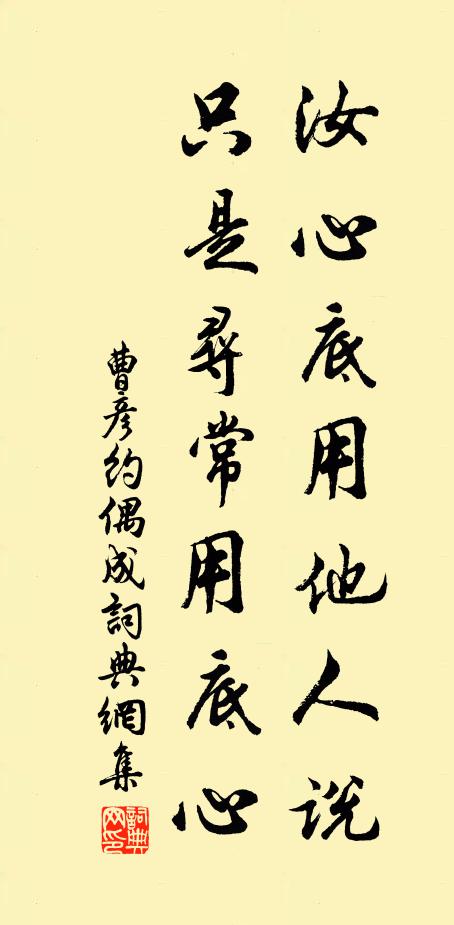 汝心底用他人說
只是尋常用底心
曹彥約偶成詞典網集
詞典网印